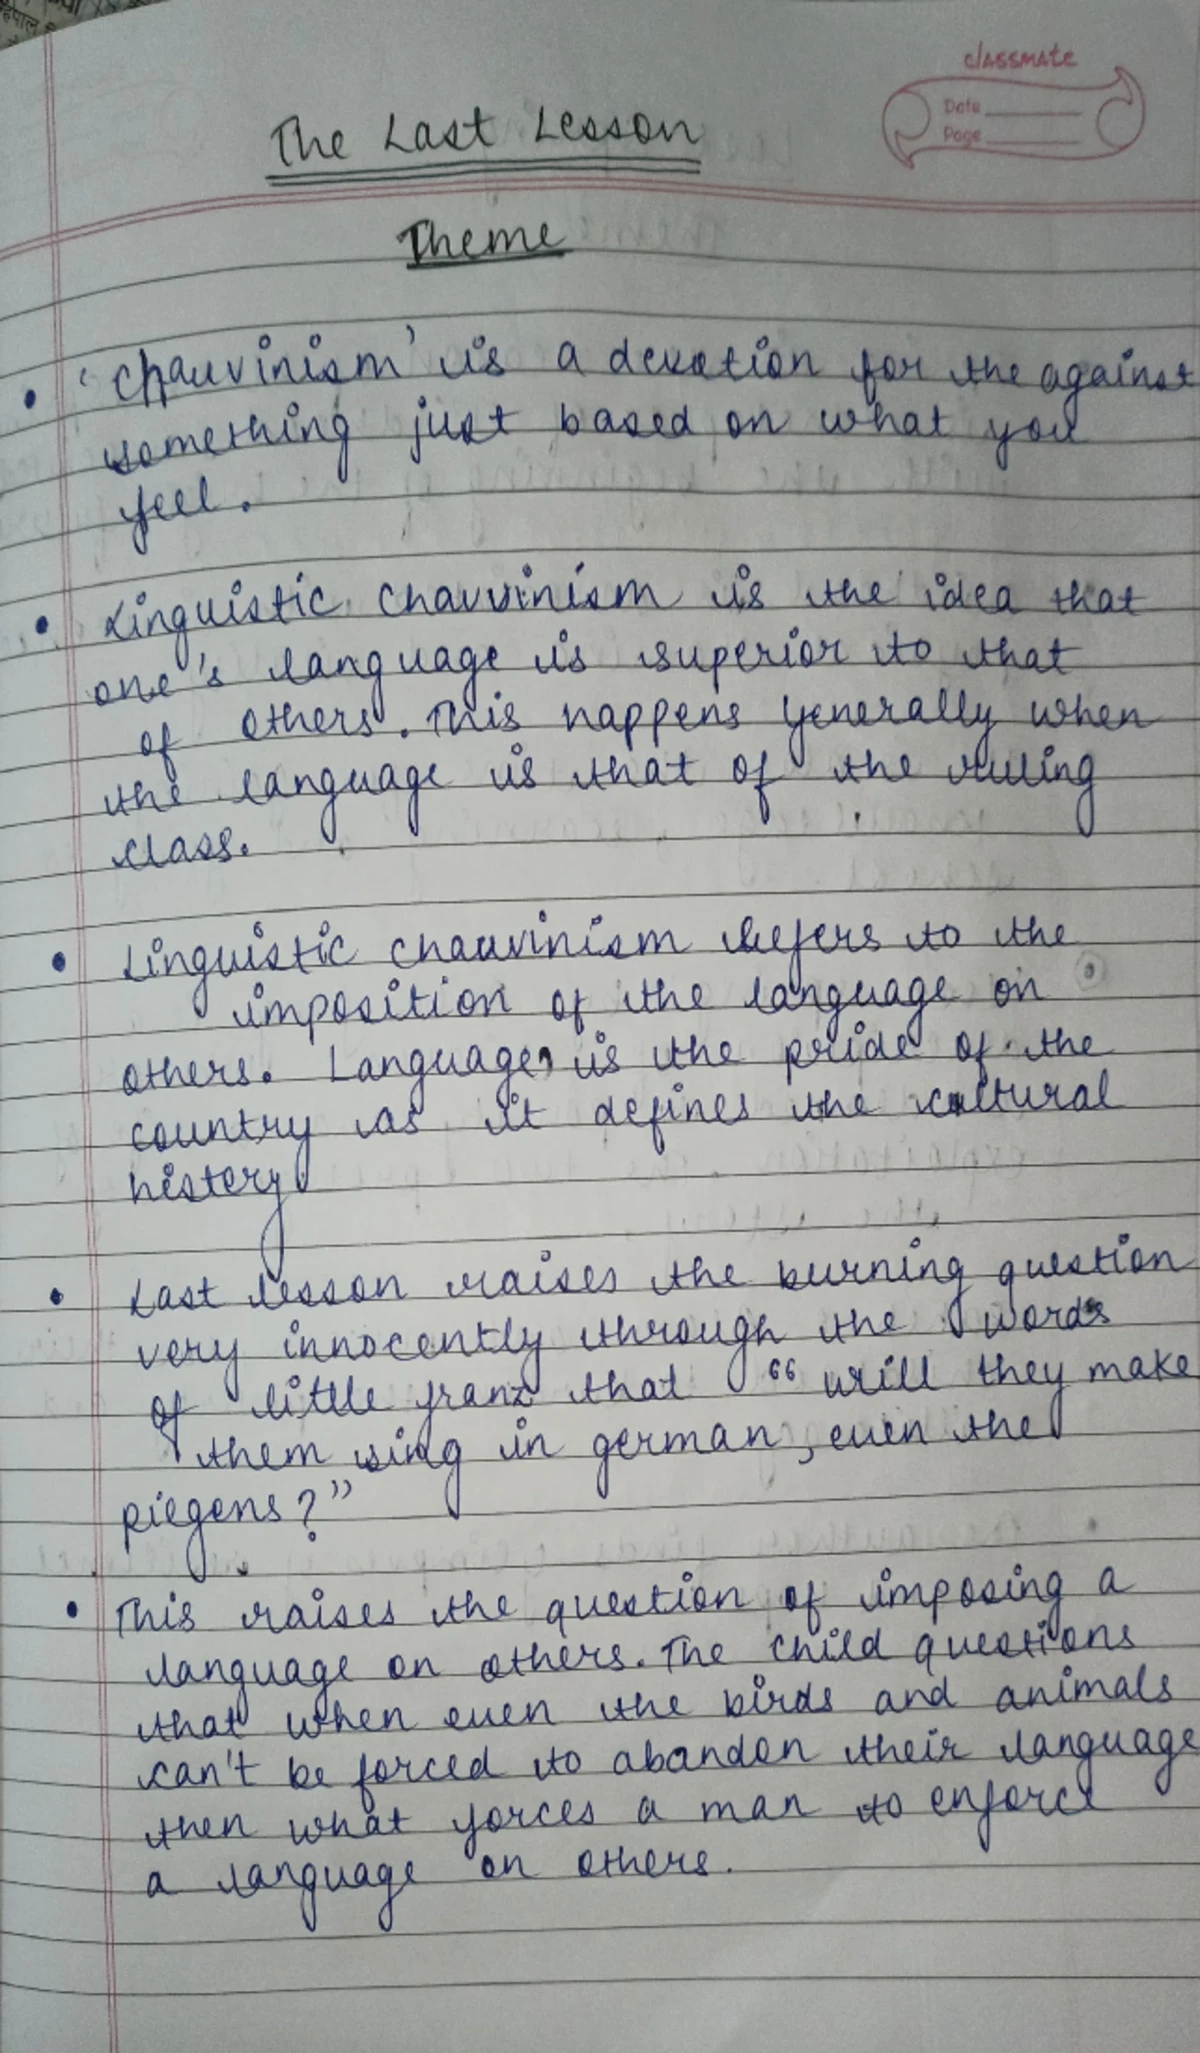 classmate
Date
Page
The Last Lesson
Theme
• 'Chauvinism' is a devotion for the against
something just based on what you
feel.
• Linguistic chauvinism is the idea that
one's language is superior to that
of others. This happens generally when
the language is that of the ruling
class.
• Linguistic chauvinism refers to the
imposition of the language on
others. Language is the pride of the
country as it defines the cultural
history
• Last lesson raises the burning question
very innocently through the words
of little franz that "will they make
them sing in german, even the
piegens?"
• This raises the question of imposing a
language on others. The child questions
that when even the birds and animals
can't be forced to abandon their language
then what forces a man to enforce
a language on others.